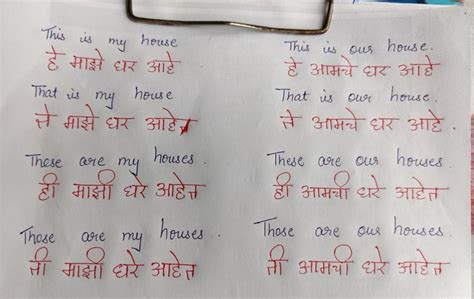 This is my house
हे माझे घर आहे
That is my house
ते माझे घर आहे
These are my houses.
ही माझी घरे आहेत
Those are my houses.
ती माझी घरे आहेत
This is our house.
हे आमचे घर आहे
That is our house.
ते आमचे घर आहे.
These are our houses.
ही आमची घरे आहेत
Those are our houses.
ती आमची घरे आहेत